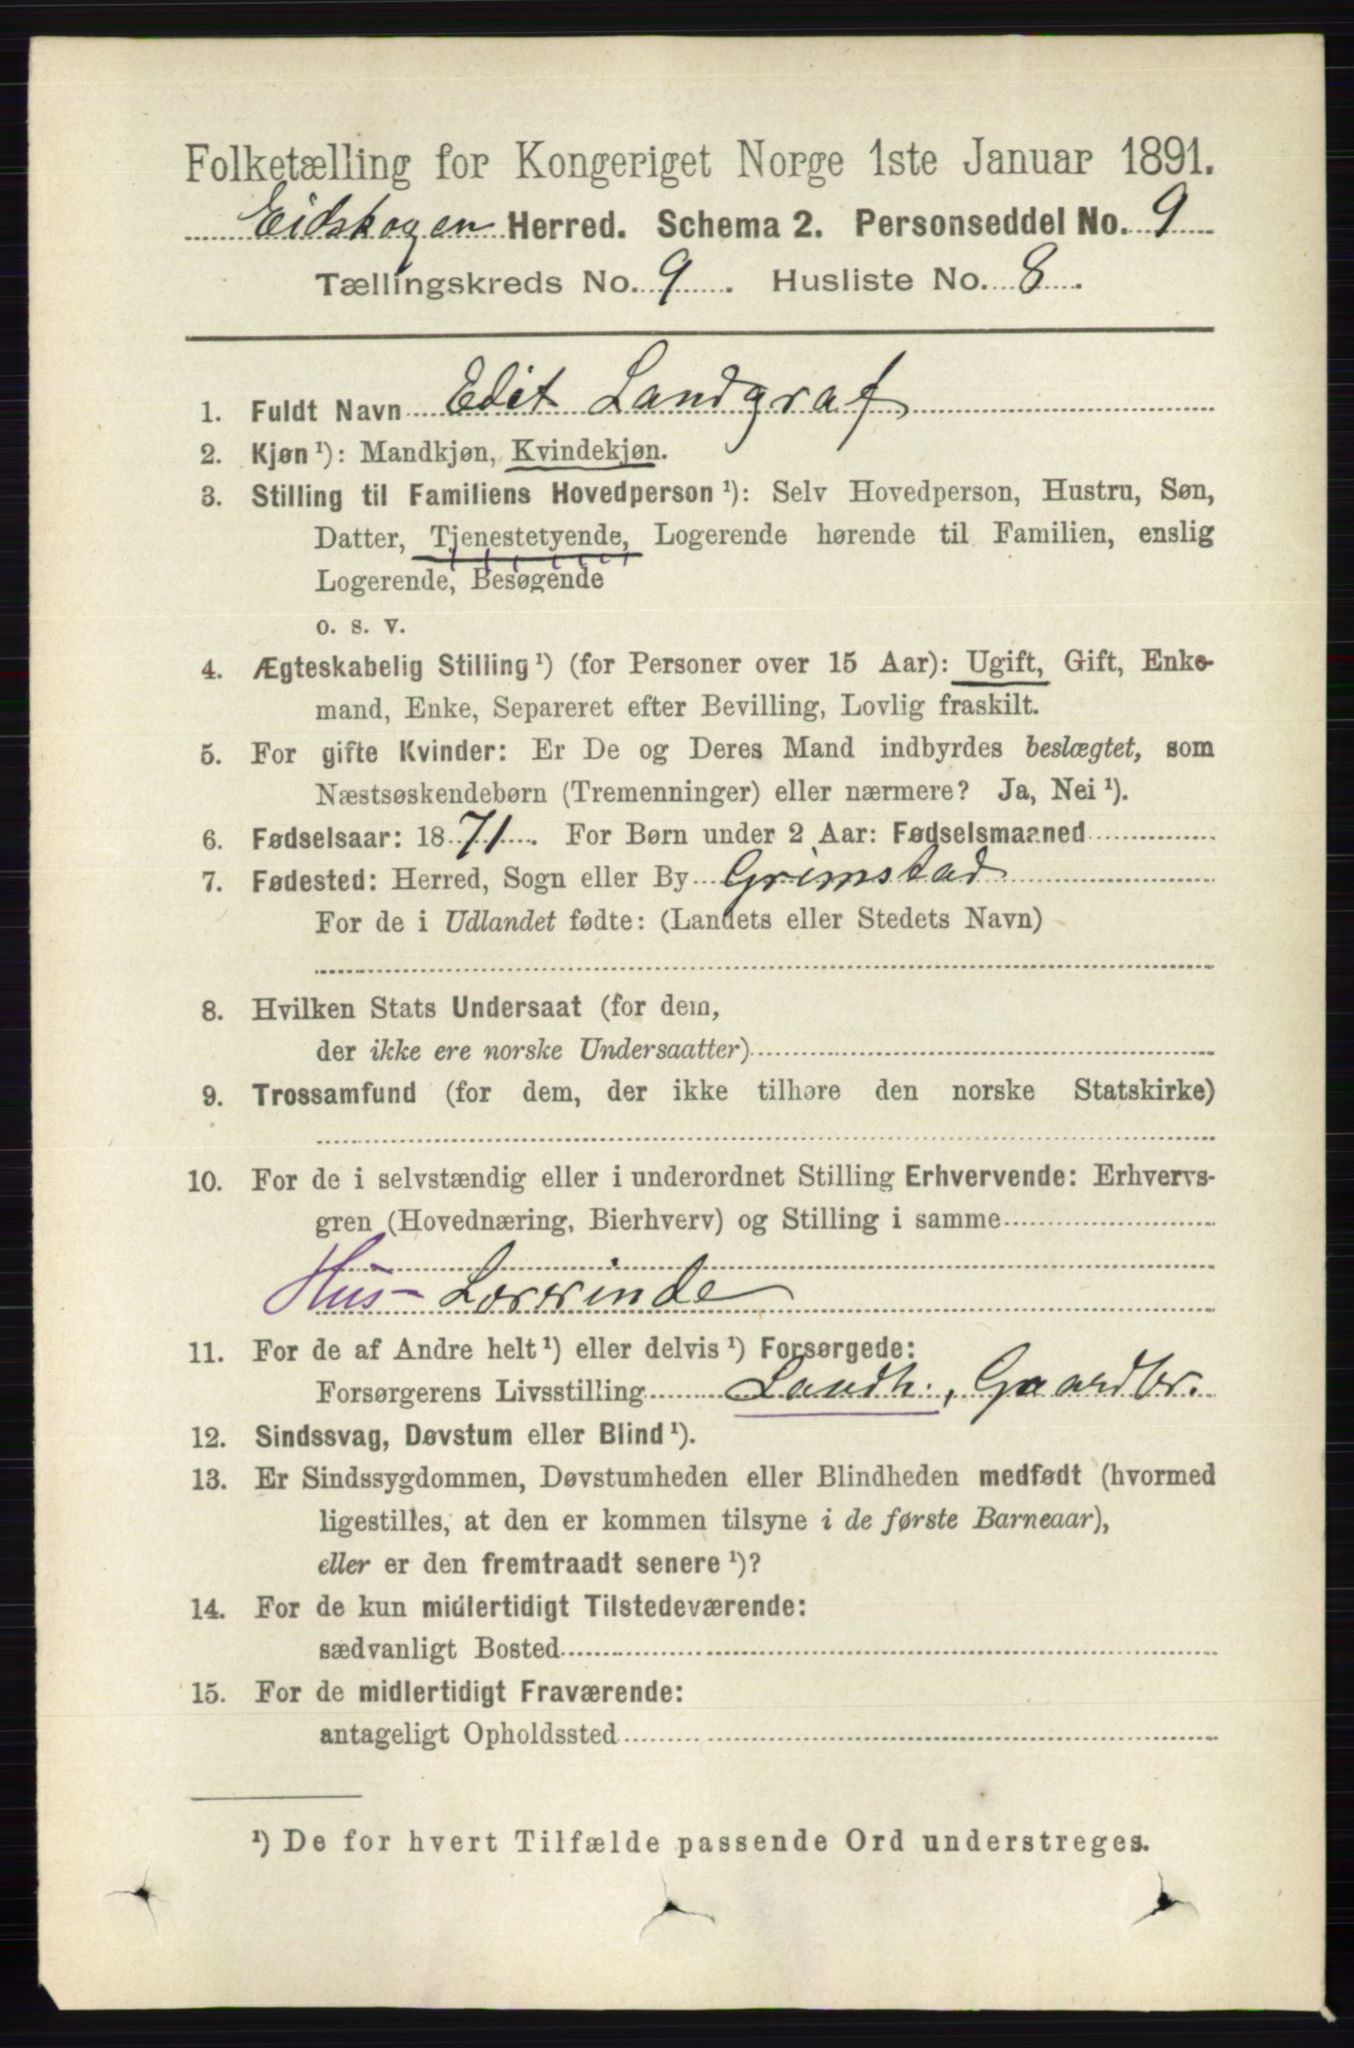 Folketælling for Kongeriget Norge 1ste Januar 1891.
Eidskogen Herred. Schema 2. Personseddel No. 9
Tællingskreds No. 9. Husliste No. 8.
1. Fuldt Navn Edit Landgraf
2. Kjøn ¹): Mandkjøn, Kvindekjøn.
3. Stilling til Familiens Hovedperson ¹): Selv Hovedperson, Hustru, Søn,
Datter, Tjenestetyende, Logerende hørende til Familien, enslig
Logerende, Besøgende
o. s. v.
4. Ægteskabelig Stilling ¹) (for Personer over 15 Aar): Ugift, Gift, Enke-
mand, Enke, Separeret efter Bevilling, Lovlig fraskilt.
5. For gifte Kvinder: Er De og Deres Mand indbyrdes beslægtet, som
Næstsøskendebørn (Tremenninger) eller nærmere? Ja, Nei ¹).
6. Fødselsaar: 1871. For Børn under 2 Aar: Fødselsmaaned
7. Fødested: Herred, Sogn eller By Grimstad
For de i Udlandet fødte: (Landets eller Stedets Navn)
8. Hvilken Stats Undersaat (for dem,
der ikke ere norske Undersaatter)
9. Trossamfund (for dem, der ikke tilhøre den norske Statskirke)
10. For de i selvstændig eller i underordnet Stilling Erhvervende: Erhvervs-
gren (Hovednæring, Bierhverv) og Stilling i samme
Hus- Lærerinde
11. For de af Andre helt ¹) eller delvis ¹) Forsørgede:
Forsørgerens Livsstilling Landh., Gaardbr.
12. Sindssvag, Døvstum eller Blind ¹).
13. Er Sindssygdommen, Døvstumheden eller Blindheden medfødt (hvormed
ligestilles, at den er kommen tilsyne i de første Barneaar),
eller er den fremtraadt senere ¹)?
14. For de kun midlertidigt Tilstedeværende:
sædvanligt Bosted
15. For de midlertidigt Fraværende:
antageligt Opholdssted
¹) De for hvert Tilfælde passende Ord understreges.